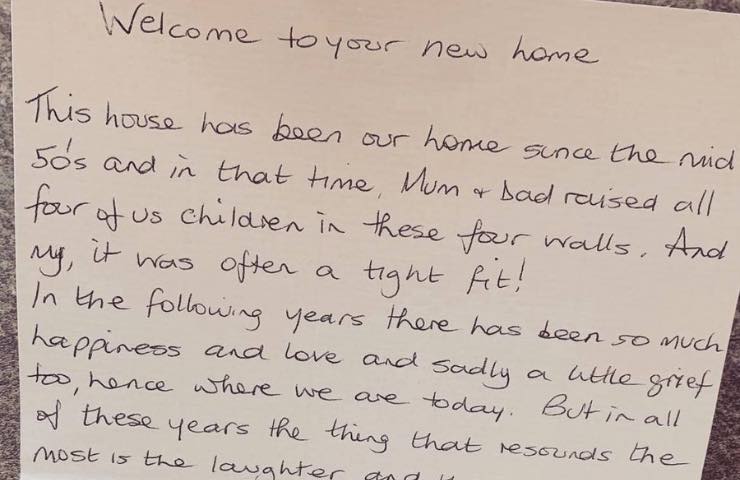 Welcome to your new home
This house has been our home since the mid
50's and in that time, Mum + Dad raised all
four of us children in these four walls. And
my, it was often a tight fit!
In the following years there has been so much
happiness and love and sadly a little grief
too, hence where we are today. But in all
of these years the thing that resounds the
most is the laughter and